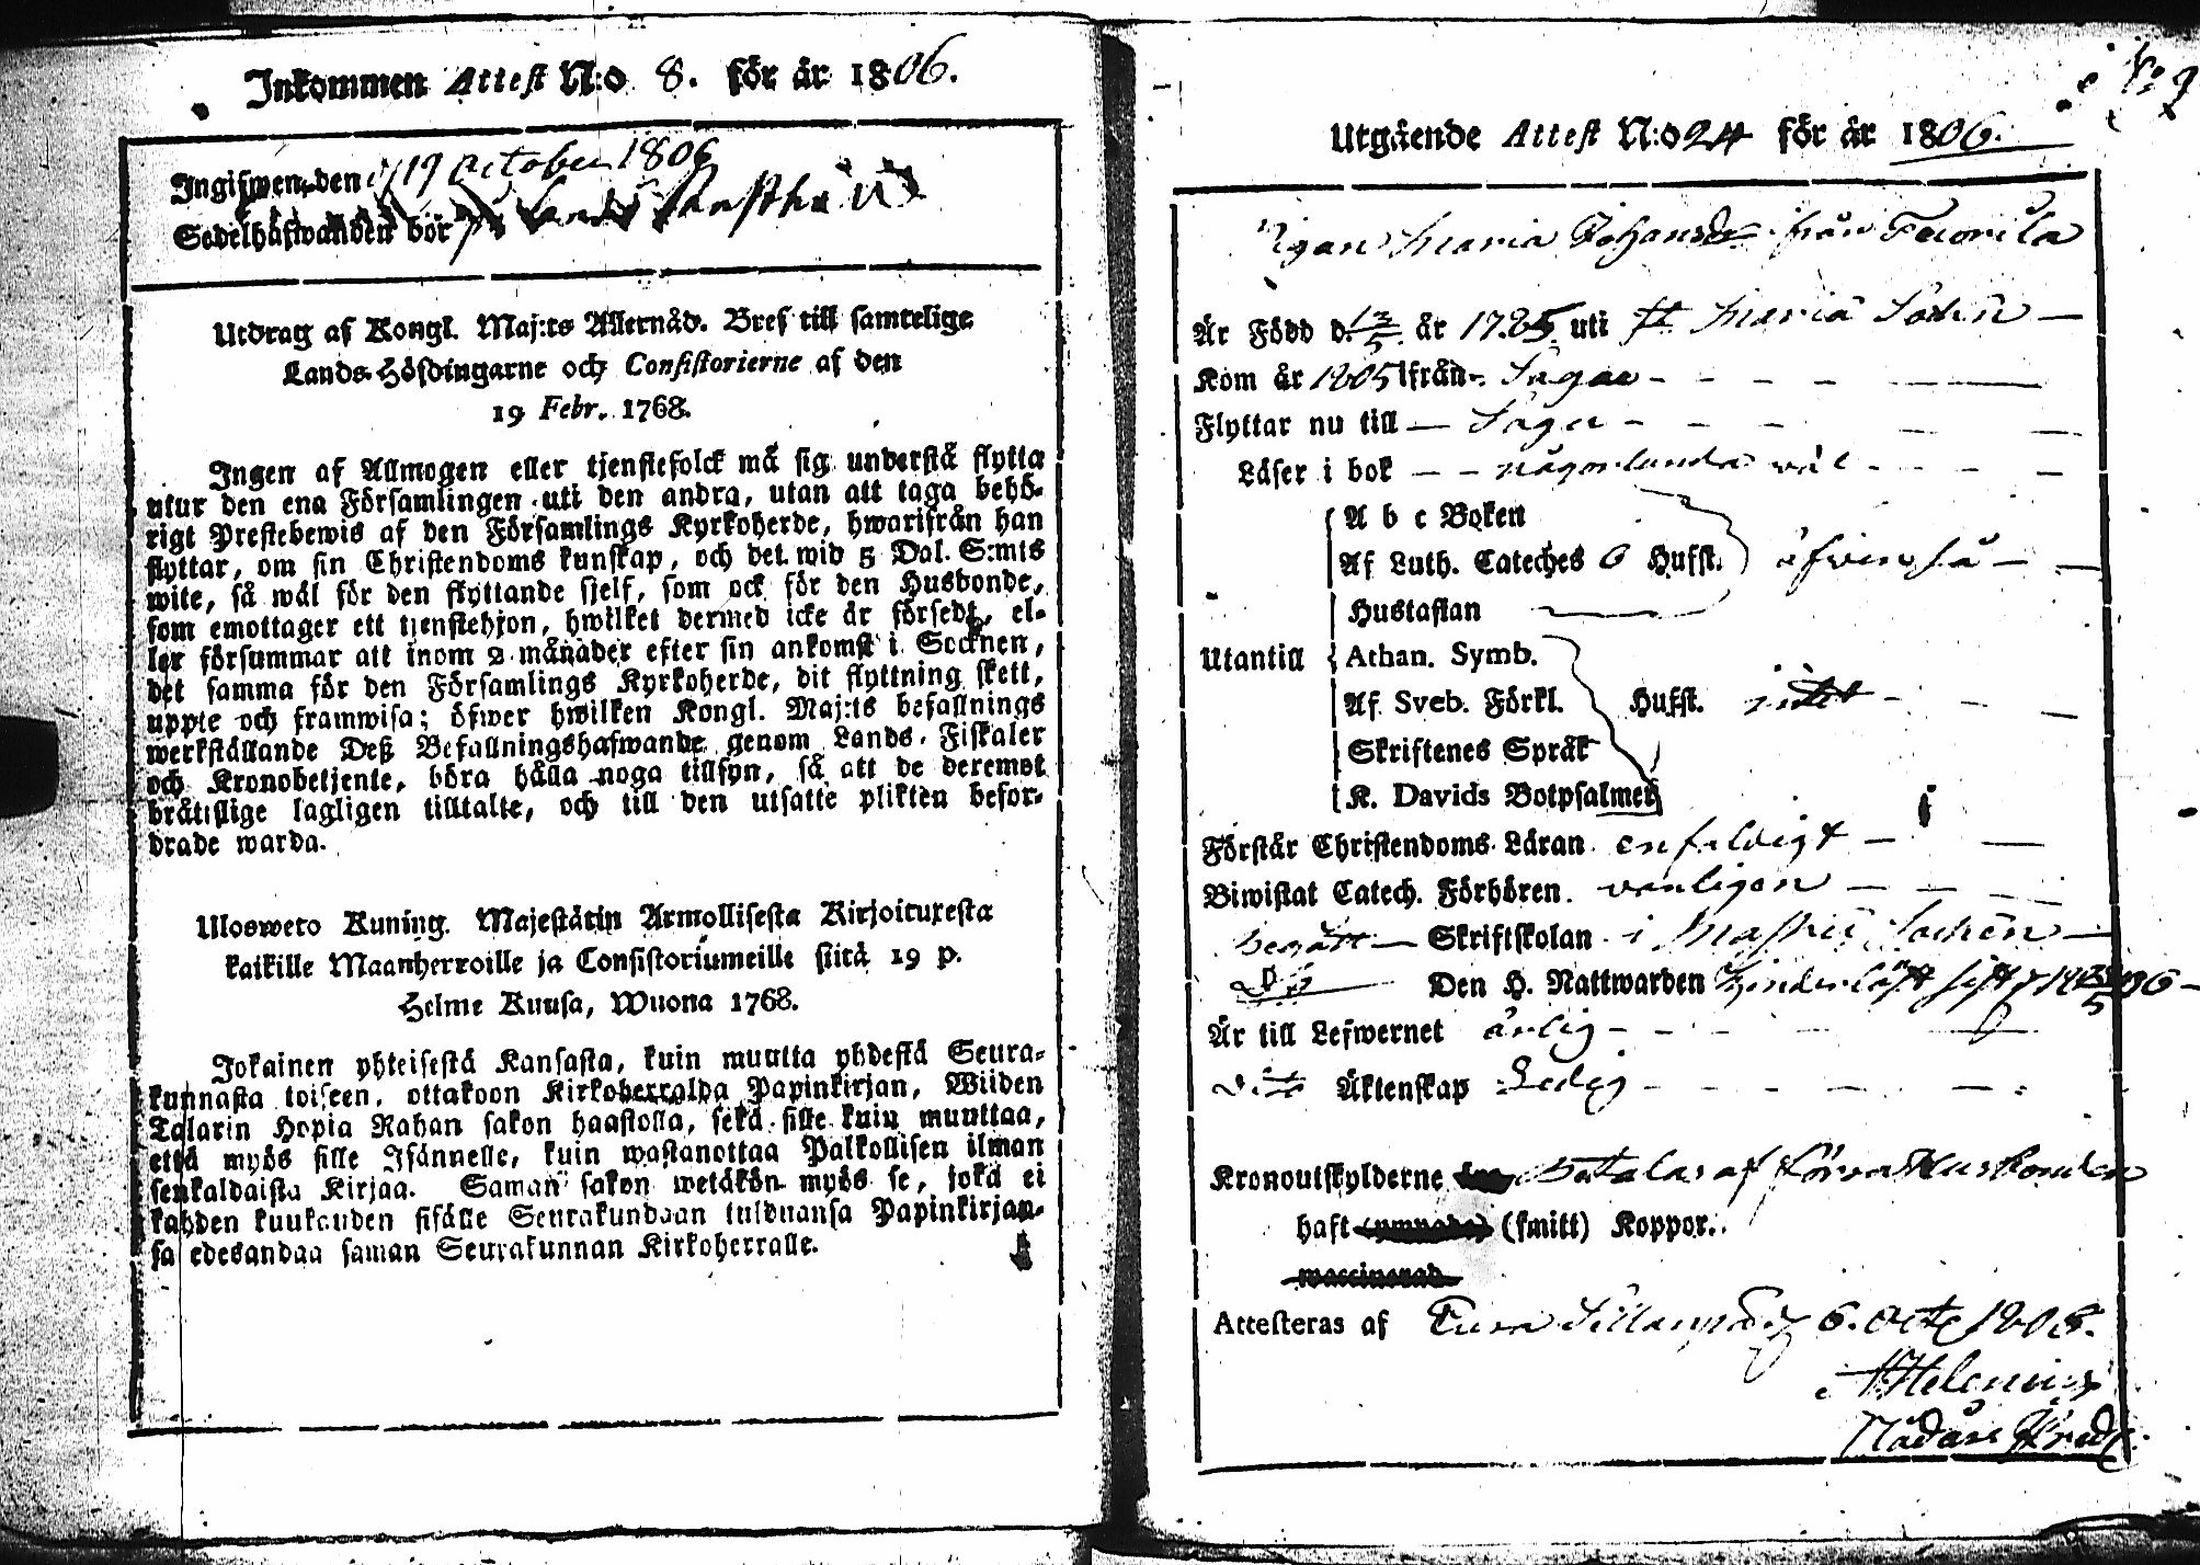 Inkommen Attest N:o 8. för år 1806.
Ingifwen den 19 October 1806
Sedelhafwanden bör på
Utdrag af Kongl. Maj:ts Allernåd. Bref till samtelige
Lands-Höfdingarne och Consistorierne af den
19 Febr. 1768.
Ingen af Allmogen eller tjenstefolck må sig understå flytta
utur den ena Församlingen uti den andra, utan att taga behö-
rigt Prestebewis af den Församlings Kyrkoherde, hwarifrån han
flyttar, om sin Christendoms kunskap, och det wid 5 Dal. S:mts
wite, så wäl för den flyttande sjelf, som ock för den Husbonde,
som emottager ett tjenstehjon, hwilket dermed icke är försedt, el-
ler försummar att inom 2 månader efter sin ankomst i Socknen,
det samma för den Församlings Kyrkoherde, dit flyttning skett,
uppte och framwisa; öfwer hwilken Kongl. Maj:ts befallnings
werkställande Deß Befallningshafwande genom Lands-Fiskaler
och Kronobetjente, böra hålla noga tillsyn, så att de deremot
brätislige lagligen tilltalte, och till den utsatte plikten befor-
drade warda.
Ulosweto Kuning. Majestätin Armollisesta Kirjoituxesta
kaikille Maanherroille ja Consistoriumeille siitä 19 p.
Helme Kuusa, Wuona 1768.
Jokainen yhteisestä Kansasta, kuin muutta yhdestä Seura-
kunnasta toiseen, ottakoon Kirkoherralda Papinkirjan, Wiiden
Talarin Hopia Rahan sakon haastolla, sekä sille kuin muuttaa,
että myös sille Isännelle, kuin wastanottaa Palkollisen ilman
senkaldaista Kirjaa. Saman sakon wetäkön myös se, joka ei
kahden kuukauden sisälle Seurakundaan tulduansa Papinkirjan-
sa edesandaa saman Seurakunnan Kirkoherralle.
Utgående Attest N:o 24 för år 1806.
Pigan Maria Johansdr från
Är Född d. 12/5 år 1785 uti St Maria Sockn
Kom år 1805 ifrån
Flyttar nu till
Läser i bok någorlunda wäl
A b c Boken
Af Luth. Cateches 6 Hufst. äfwen så
Hustaflan
Utantill Athan. Symb.
Af Sveb. Förkl. Hufst. intet
Skriftenes Språk
K. Davids Botpsalmer
Förstår Christendoms Läran enfaldigt
Biwistat Catech. Förhören wanligen
Begått Skriftskolan i Sockn
Do Den H. Nattwarden
Är till Lefwernet ärlig
Dito Äktenskap Ledig
Kronoutskylderne betalas af förra Husbonden
haft (smitt) Koppor.
waccinerad
Attesteras af Eura 6. Oct 1806.
Helenius
Nådårs Pred.